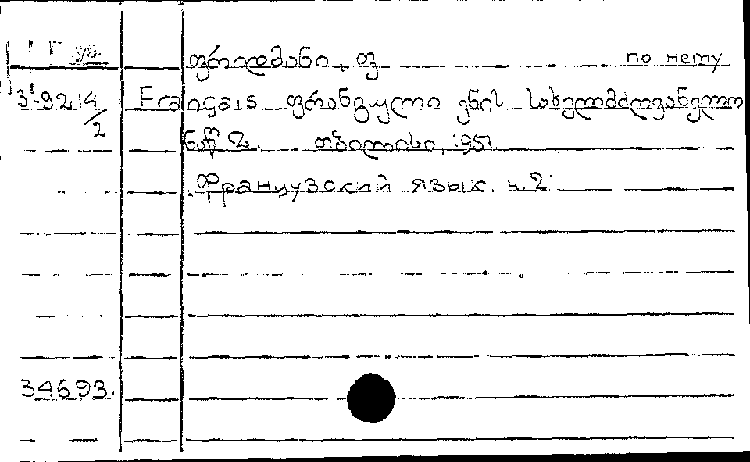 ფრიდმანი, ფ. по нему
3-9214/2 Français ფრანგული ენის სახელმძღვანელო
ნაწ 2. თბილისი, 1951
Французский язык. ч. 2.
34693.